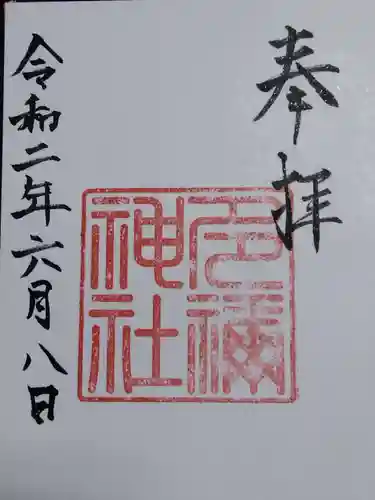 奉拝
神社
令和二年六月八日